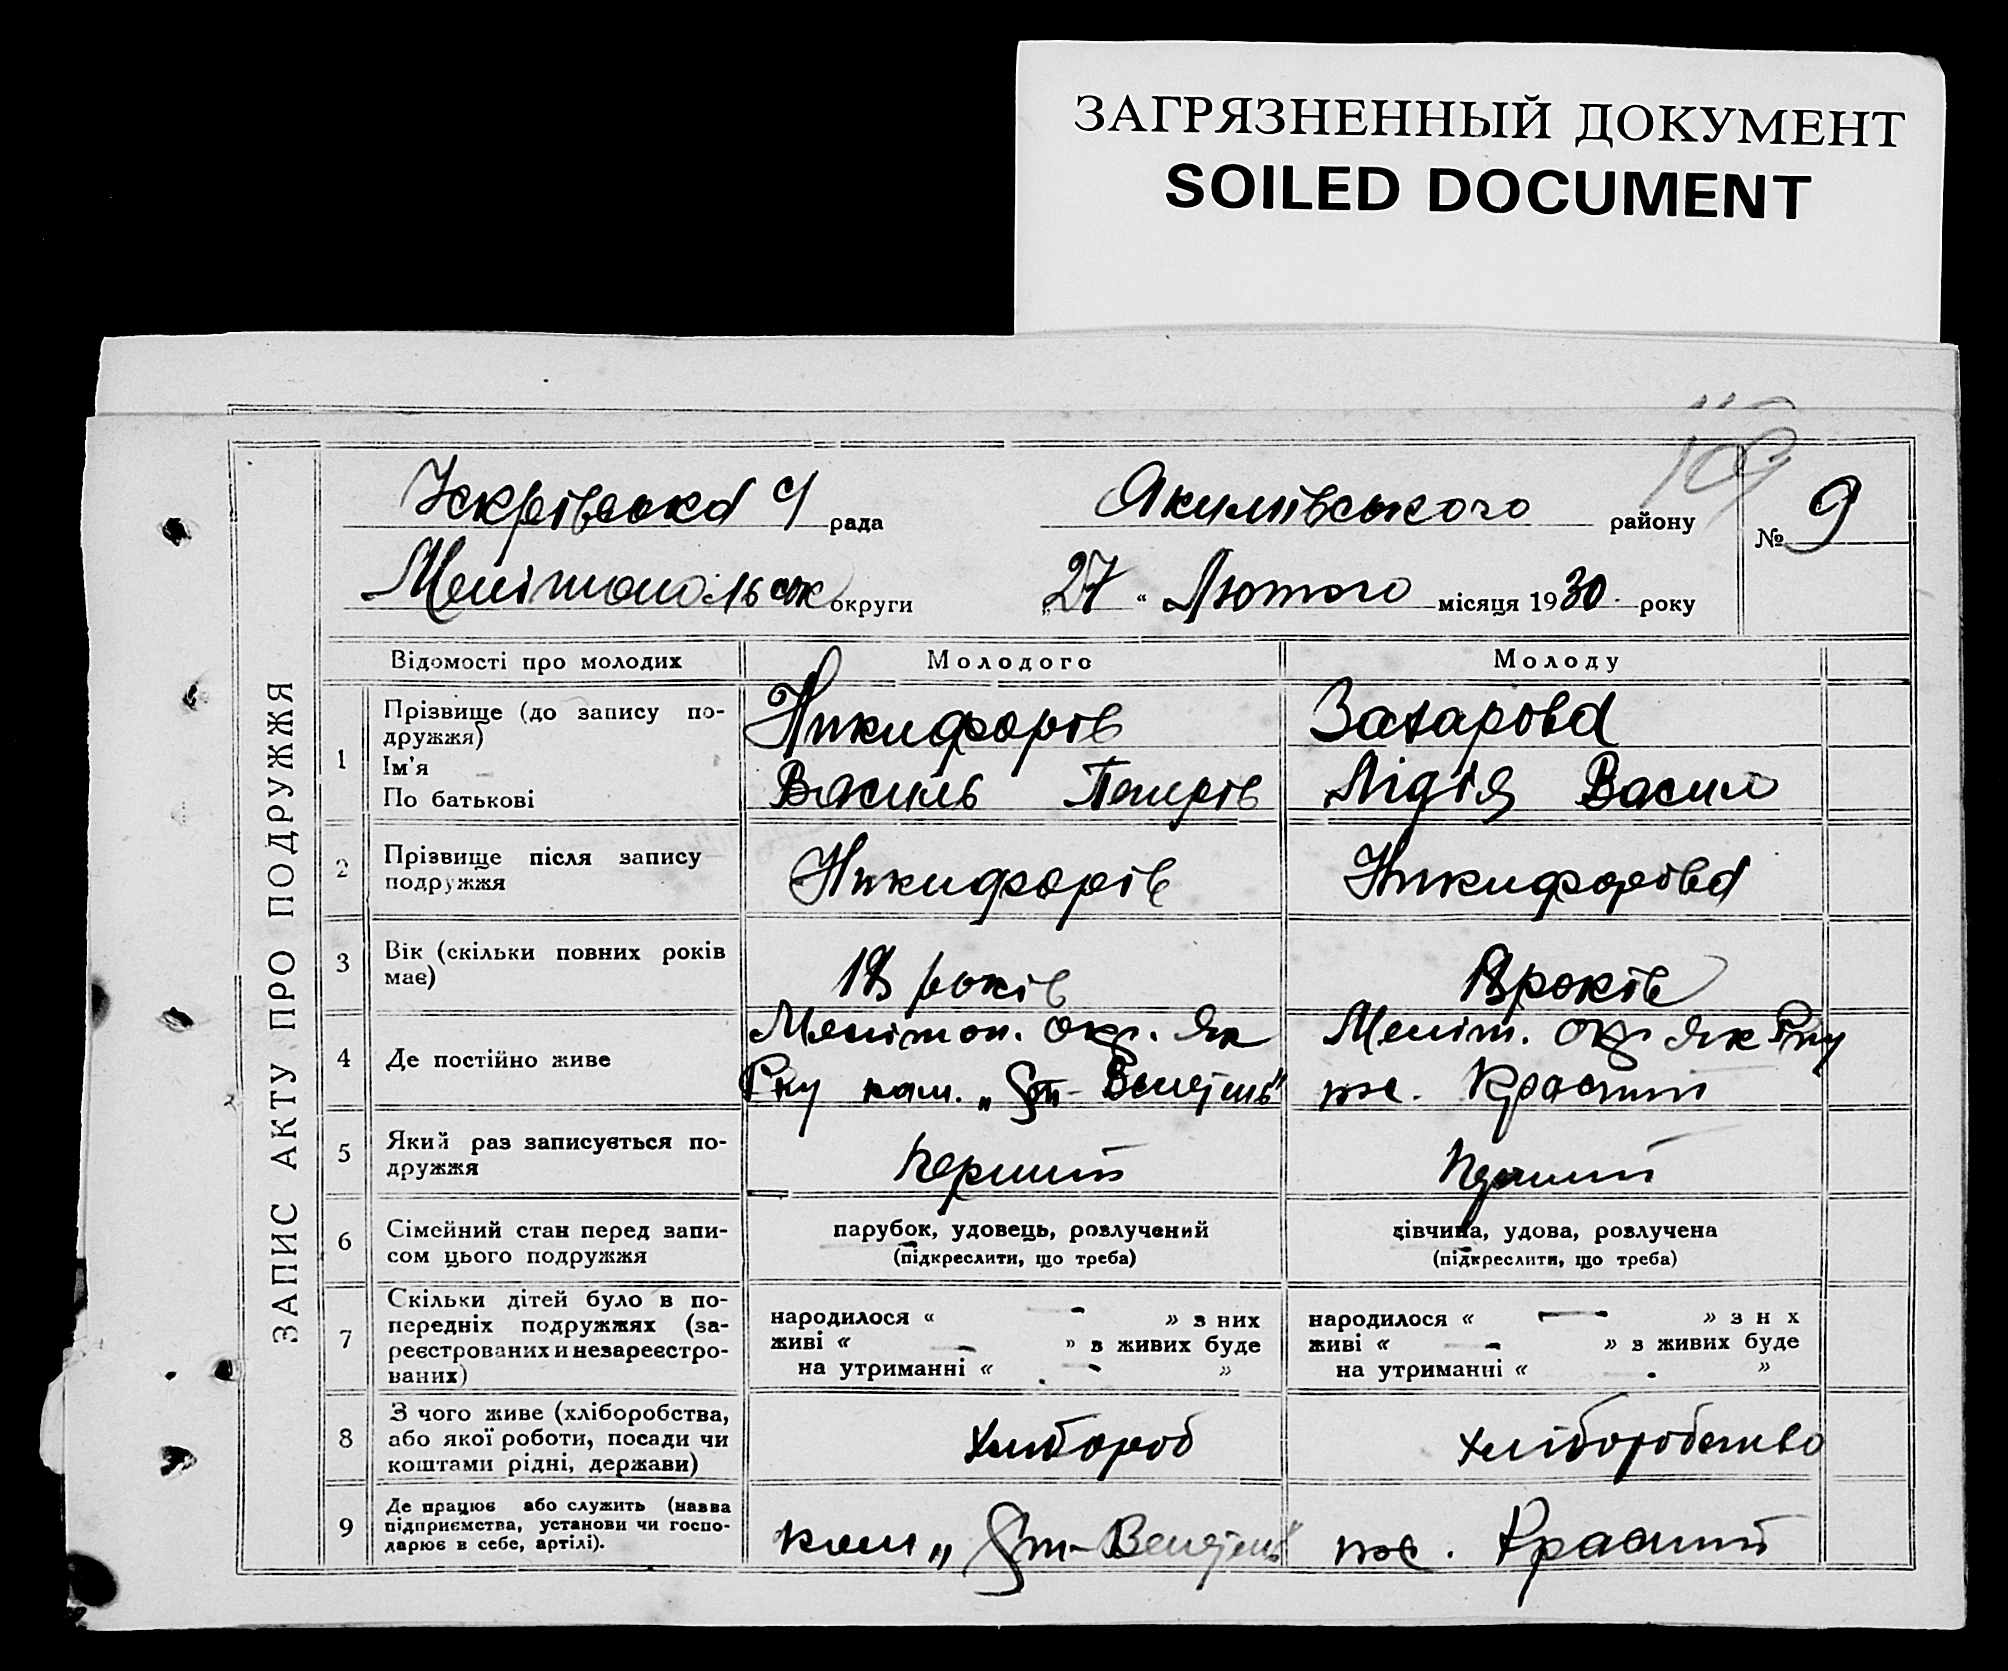 ЗАГРЯЗНЕННЫЙ ДОКУМЕНТ
SOILED DOCUMENT
Якимівського району
№ 9
округи
„27“ Лютого місяця 1930. року
ЗАПИС АКТУ ПРО ПОДРУЖЖЯ
Відомості про молодих Молодого Молоду
1 Прізвище (до запису по-
дружжя) Никифорів Захарова
Ім'я
По батькові Василь Петрів Лідія Васил
2 Прізвище після запису
подружжя Никифорів Никифорова
3 Вік (скільки повних років
має) 18 років 18 років
4 Де постійно живе Мелітоп. окр. Як Меліт. окр Як Р-ну
Р-ну ком. хс. Красний
5 Який раз записується по-
дружжя перший перший
6 Сімейний стан перед запи-
сом цього подружжя
парубок, удовець, розлучений
(підкреслити, що треба)
дівчина, удова, розлучена
(підкреслити, що треба)
7 Скільки дітей було в по-
передніх подружжях (за-
реєстрованих и незареєстро-
ваних)
народилося « — » з них
живі « — » в живих буде
на утриманні « — »
народилося « — » з н х
живі « — » в живих буде
на утриманні « — »
8 З чого живе (хліборобства,
або якої роботи, посади чи
коштами рідні, держави)
хлібороб хліборобство
9 Де працює або служить (назва
підприємства, установи чи госпо-
дарює в себе, артілі).
ком хс. Красний